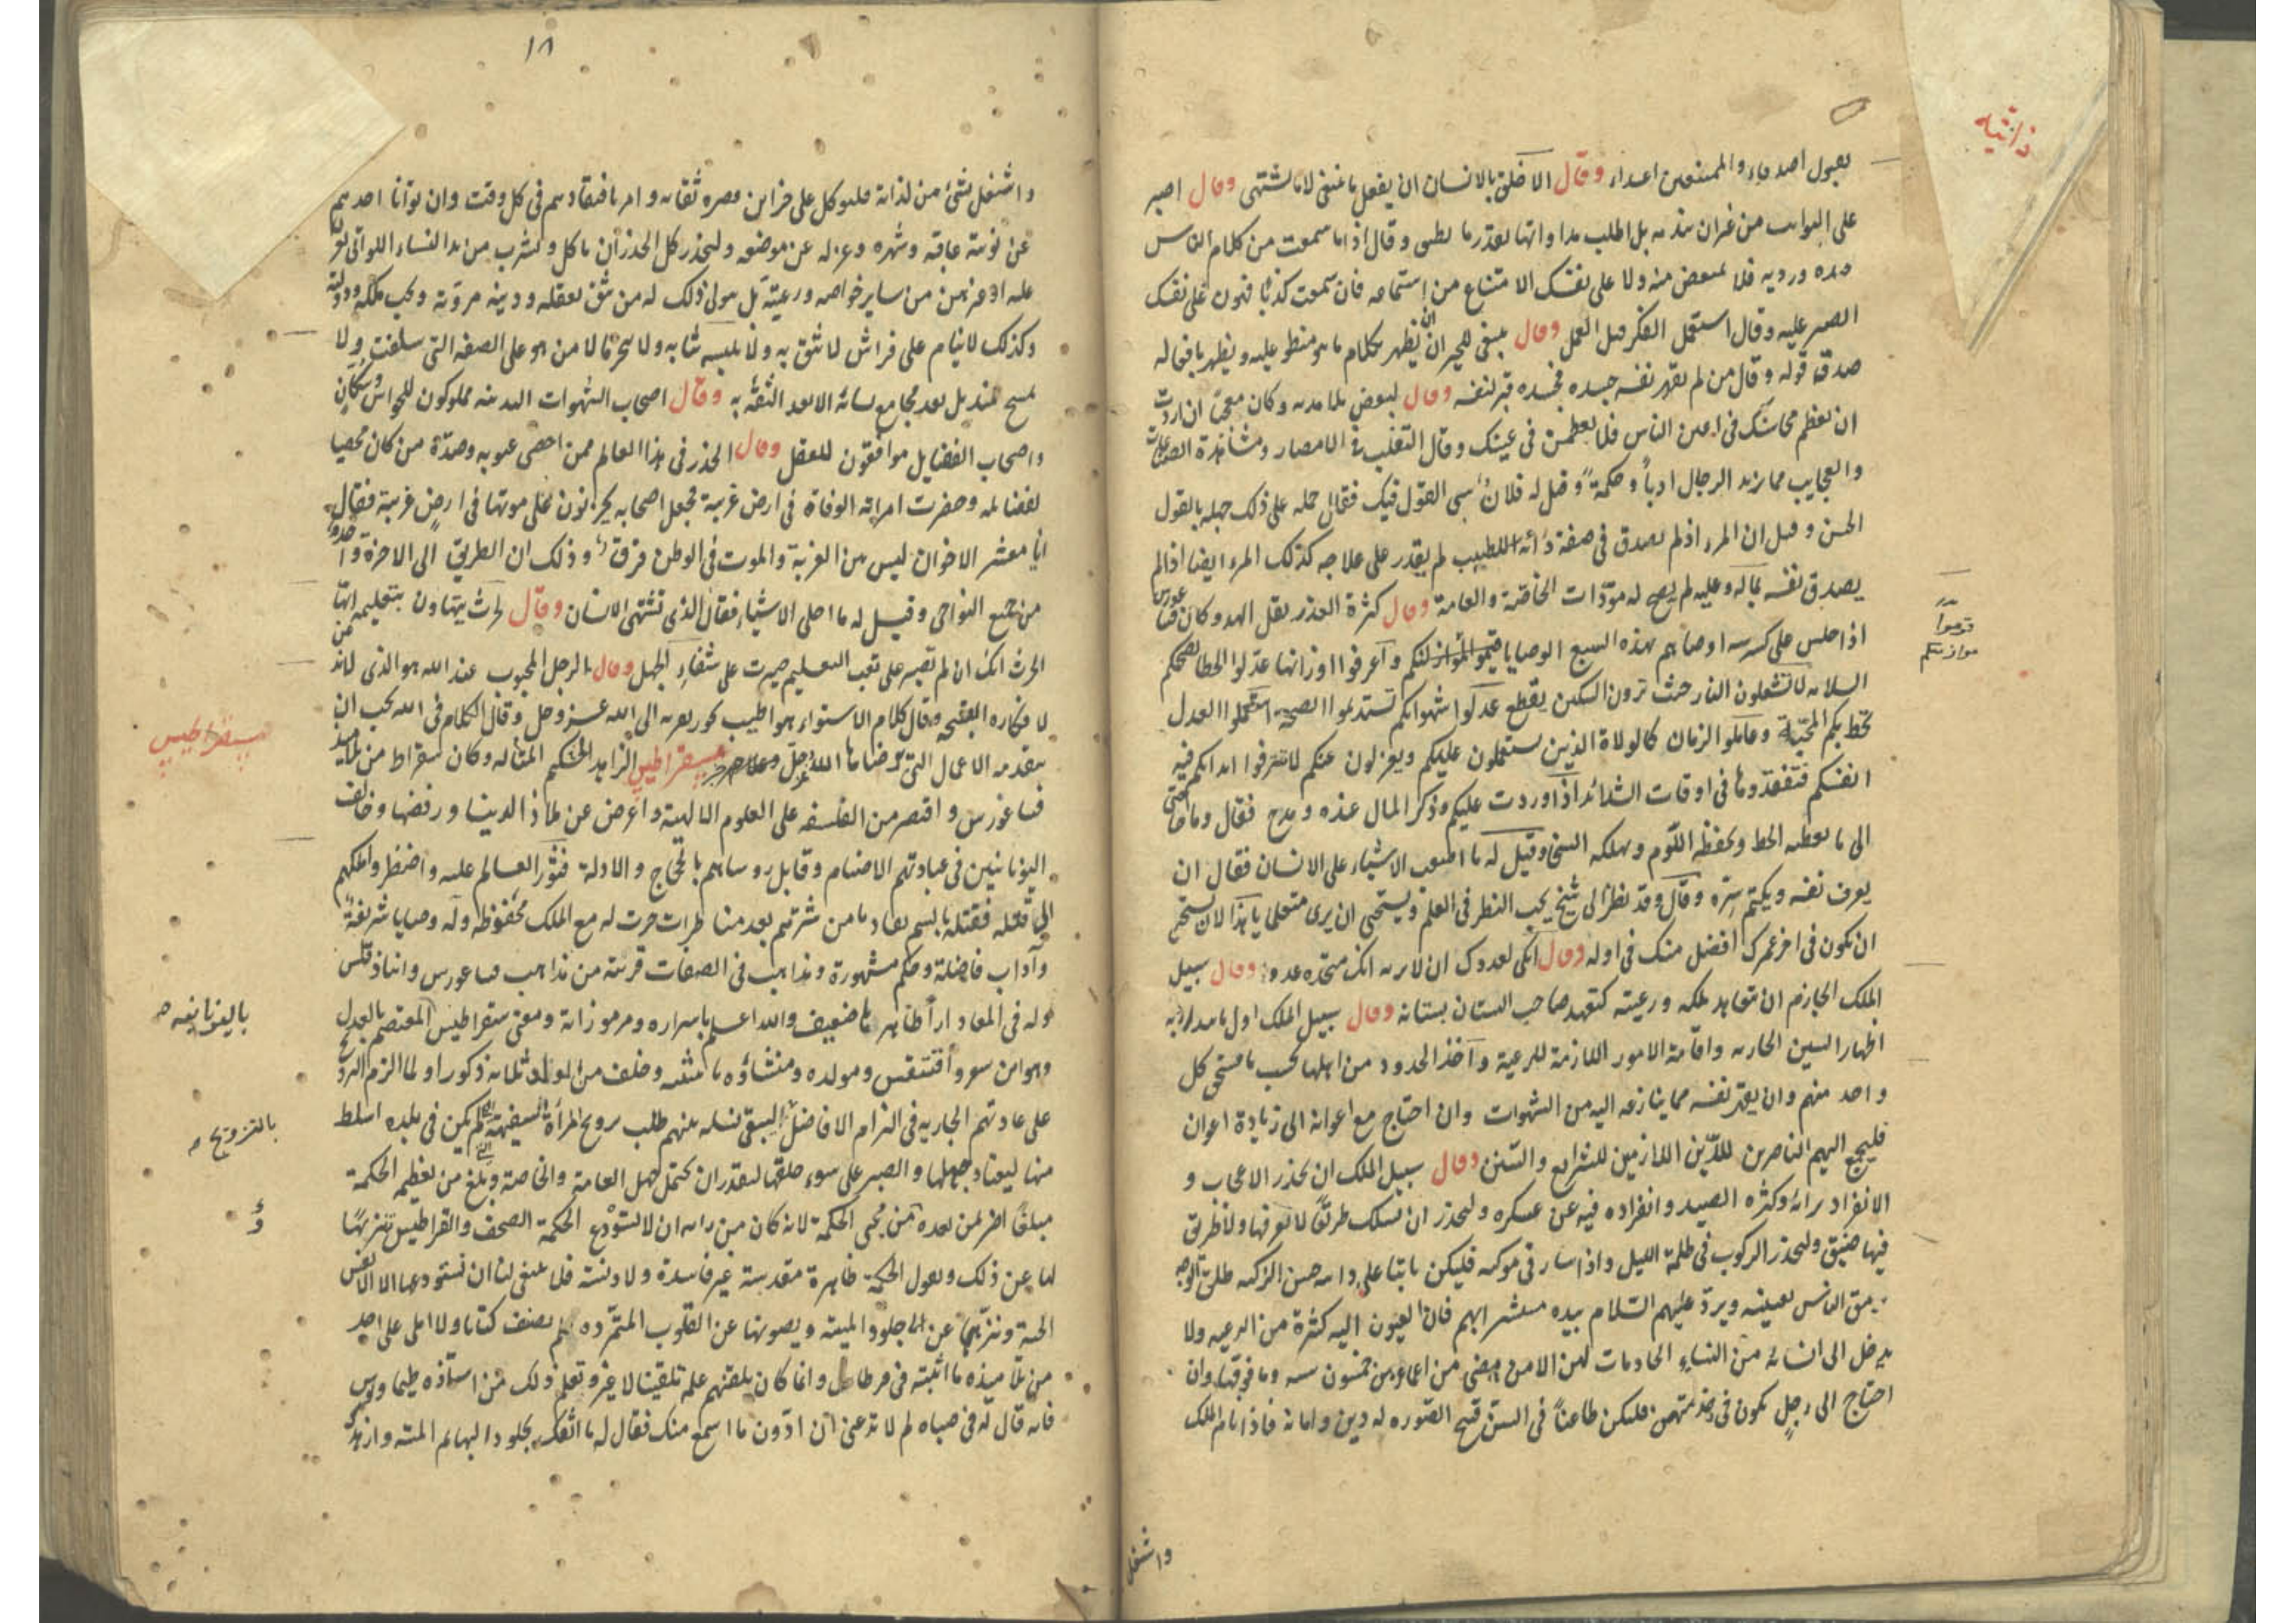 بقبول اصدقاء والممتنعين اعداء وقال الاخلق بالانسان ان يفعل ما ينبغى لا ما يشتهى وقال اصبر
على النوايب من غير ان تتذمر بل اطلب مداواتها بقدر ما تطيق وقال اذا ما سمعت من كلام الناس
جيده ورديه فلا تمتعض منه ولا على نفسك الامتناع من استماعه فان سمعت كذبًا فهون على نفسك
الصبر عليه وقال استعمل الفكر قبل العمل وقال ينبغى للخير ان يظهر بكلام ما هو منطو عليه ويظهر بافعاله
صدق قوله وقال من لم يقهر نفسه جسده فجسده قبر لنفسه وقال لبعض تلامذته وكان معجبًا ان اردت
ان تعظم محاسنك فى اعين الناس فلا تعظمن فى عينك وقال التقلب فى الامصار ومشاهدة الصناعات
والعجايب مما يزيد الرجال ادبًا وحكمةً وقيل له فلان يسى القول فيك فقال حمله على ذلك جهله بالقول
الحسن وقيل ان المرء اذ لم يصدق فى صفة دائه للطبيب لم يقدر على علاجه كذلك المرء ايضا اذا لم
يصدق نفسه بما له وعليه لم يصح له مودّات الخاصة والعامة وقال كثرة العدو يقل الهدو وكان فيثاغورس
اذا جلس على كرسيه اوصاهم بهذه السبع الوصايا قيموا موازينكم واعرفوا اوزانها عدّلوا الخطا تصحبكم
السلامه لا تشعلون النار حيث ترون السكين يقطع عدلوا شهواتكم تستديموا الصحة استعملوا العدل
تحط بكم المحبّة وعاملوا الزمان كالولاة الذين يستعملون عليكم ويعزلون عنكم لا تترفوا ابدانكم
انفسكم فتفقدوها فى اوقات الشدائد اذا وردت عليكم وذكر المال عنده ومدح فقال وما حاجتى
الى ما يعطيه الحظ ويحفظه اللؤم ويهلكه السخا وقيل له ما اصعب الاشياء على الانسان فقال ان
يعرف نفسه ويكتم سرّه وقال وقد نظر الى شيخ يحب النظر فى العلم ويستحى ان يرى متعلمًا يا هذا لا تستحى
ان تكون فى اخر عمرك افضل منك فى اوله وقال انكى لعدوك ان لا تريه انك تتخذه عدوا وقال سبيل
الملك الحازم ان يتعاهد ملكه ورعيته كتعهد صاحب البستان بستانه وقال سبيل الملك اول ما يبدا به
اظهار السنن الجاريه واقامة الامور اللازمة للرعية واخذ الحدود من اهلها بحسب ما يستحق كل
واحد منهم وان يقهر نفسه مما ينازعه اليه من الشهوات وان احتاج مع اعوانه الى زيادة اعوان
فليجمع اليهم الناصرين للدين اللازمين للشرايع والسنن وقال سبيل الملك ان يحذر الاعجاب و
الانفراد برائه وكثرة الصيد وانفراده فيه عن عسكره وليحذر ان يسلك طرقًا لا يعرفها ولا طريق
فيها ضيق وليحذر الركوب فى ظلمة الليل واذا سار فى موكبه فليكن ثابتا على دابته حسن الركبه طلق الوجه
يرمق الناس بعينيه ويردّ عليهم السلام بيده مستبشرا بهم فان العيون اليه كثرة من الرعيه ولا
يدخل الى انسانه من النساء الخادمات لهن الا من مضى من اعمارهن خمسون سنه وما فوقها وان
احتاج الى رجل يكون فى خدمتهن فليكن طاعنًا فى السن قبيح الصوره له دين وامانة فاذا نام الملك
واشتغل
قوموا
موازينكم
١٨
واشتغل بشئ من لذاته فليوكل على خزاين قصره ثقاته وامر بافتقادهم فى كل وقت وان توانا احدهم
عن نوبته عاقبه وشهره وعزله عن موضعه وليحذر كل الحذر ان ياكل ويشرب من يد النساء اللواتى يغرن
عليه او غيرهن من ساير خواصه ورعيته بل يتولى ذلك له من يثق بعقله ودينه ومروته ويحب ملكه ودولته
وكذلك لا ينام على فراش لا يثق به ولا يلبسه ثيابه ولا يبخرها الا من هو على الصفه التى سلفت ولا
يمسح بمنديل بعد مجامع نسائه الا بعد الثقة به وقال اصحاب الشهوات البدنيه مملوكون للحواس
واصحاب الفضايل موافقون للعقل وقال الحذر فى هذا العالم ممن احصى عيوبه وضدّه من كان محصيا
لفضايله وحضرت امراته الوفاة فى ارض غربة فجعل اصحابه يحزنون على موتها فى ارض غربة فقال
يا معشر الاخوان ليس بين الغربة والموت فى الوطن فرق وذلك ان الطريق الى الاخرة واحد
من جميع النواحى وقيل له ما احلى الاشياء فقال الذى تشتهى الانسان وقال لحدث يتهاون بتعليمه ايها
الحدث انك ان لم تصبر على تعب التعليم صبرت على شقاء الجهل وقال الرجل المحبوب عند الله هو الذى لا يذ
لافكاره القبيحه وقال كلام الاستواء هو اطيب بخور يقربه الى الله عز وجل وقال الكلام فى الله يجب ان
يتقدمه الاعمال التى يرضاها الله عز وجل سقراطيس الزاهد الحكيم المتاله وكان سقراط من تلاميذ
فيثاغورس واقتصر من الفلسفه على العلوم الالهية واعرض عن ملاذ الدنيا ورفضها وخالف
اليونانيين فى عبادتهم الاصنام وقابل روساهم بالحجاج والادلة فثور العالم عليه واضطر ملكهم
الى قتله فقتله بالسم تفاديا من شرتهم بعد مناظرات جرت له مع الملك محفوظه وله وصايا شريفة
وآداب فاضلة وحكم مشهورة ومذاهب فى الصفات قريبة من مذاهب فيثاغورس وانباذقلس
وله فى المعاد ارآ ظاهرها ضعيف والله اعلم باسراره ومرموزاته ومعنى سقراطيس المعتصم بالعدل
وهو ابن سوروافنتقس ومولده ومنشاؤه باثنيه وخلف من الولد ثلاثه ذكور اولما الزم التزويج
على عادتهم الجاريه فى الزام الافاضل ليبقى نسله بينهم طلب تزويج المراة السفيهة التى لم يكن فى بلده اسلط
منها ليعتاد جهلها والصبر على سوء خلقها ليقدر ان يحتمل جهل العامة والخاصة وبلغ من تعظيمه الحكمة
مبلغًا اضر بمن بعده من محبى الحكمة لانه كان من رايه ان لا تستودع الحكمة الصحف والقراطيس تنزيهًا
لها عن ذلك ويقول الحكمة طاهرة مقدسة غير فاسدة ولا دنسة فلا ينبغى لنا ان نستودعها الا الانفس
الحية وننزهها عن الجلود الميته ونصونها عن القلوب المتمرده ولم يصنف كتابا ولا املى على احد
من تلاميذه ما اثبته فى قرطاس وانما كان يلقنهم علمه تلقينا لا غير وتعلم ذلك من استاذه طيماوس
فانه قال له فى صباه لم لا تدعنى ان ادّون ما اسمع منك فقال له ما اثقك بجلود البهايم الميته وازهدك
سقراطيس
باليونانيه
بالتزويج